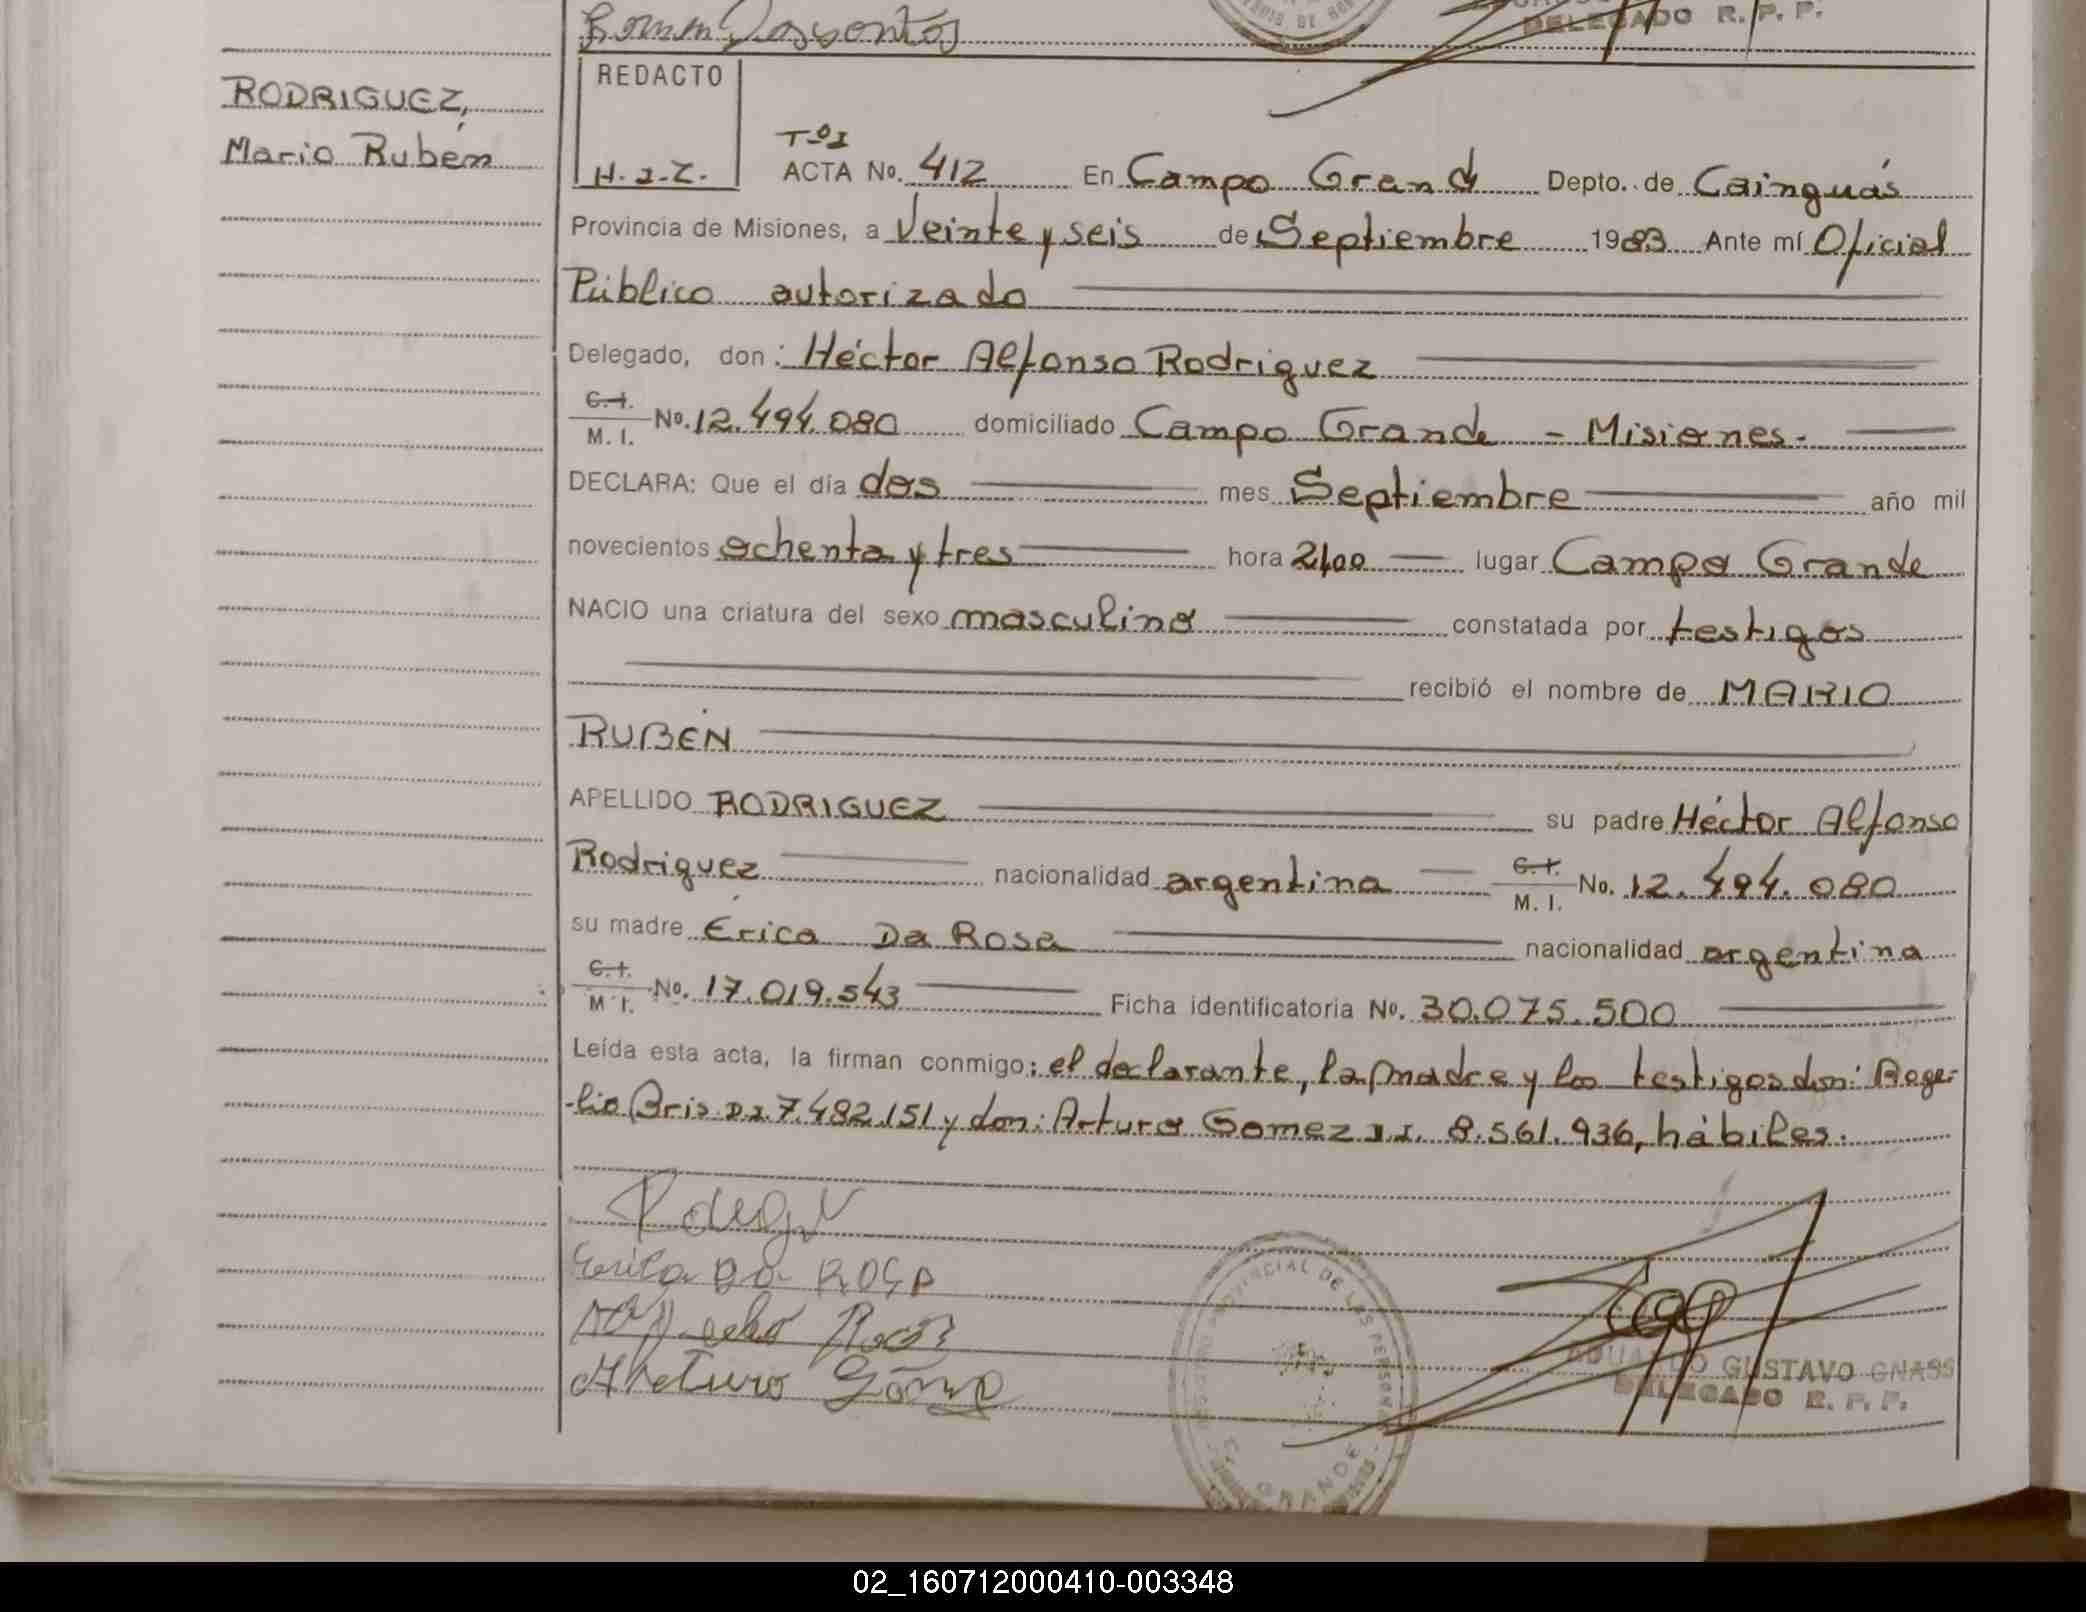 DELEGADO R. P. P.
RODRIGUEZ,
Mario Rubén
REDACTO
H.J.Z.
Tº I
ACTA No. 412 En Campo Grande Depto. de Cainguás
Provincia de Misiones, a Veinte y seis de Septiembre 1983 Ante mí Oficial
Público autorizado
Delegado, don: Héctor Alfonso Rodriguez
C.I. M. I. No. 12.494.080 domiciliado Campo Grande - Misiones.
DECLARA: Que el día dos mes Septiembre año mil
novecientos ochenta y tres hora 21,00 lugar Campo Grande
NACIO una criatura del sexo masculino constatada por testigos
recibió el nombre de MARIO
RUBÉN
APELLIDO RODRIGUEZ su padre Héctor Alfonso
Rodriguez nacionalidad argentina C.I. M. I. No. 12.494.080
su madre Erica Da Rosa nacionalidad argentina
C.I. M I. No. 17.019.543 Ficha identificatoria No. 30.075.500
Leída esta acta, la firman conmigo: el declarante, la madre y los testigos don: Roge-
-lio Bris D.I. 7.482.151 y don: Arturo Gomez D.I. 8.561.936, hábiles.
Erica Da ROSA
Arturo Gomez
PROVINCIAL DE LAS PERSONAS
GRANDE
EDUARDO GUSTAVO GNASS
DELEGADO R. P. P.
02_160712000410-003348